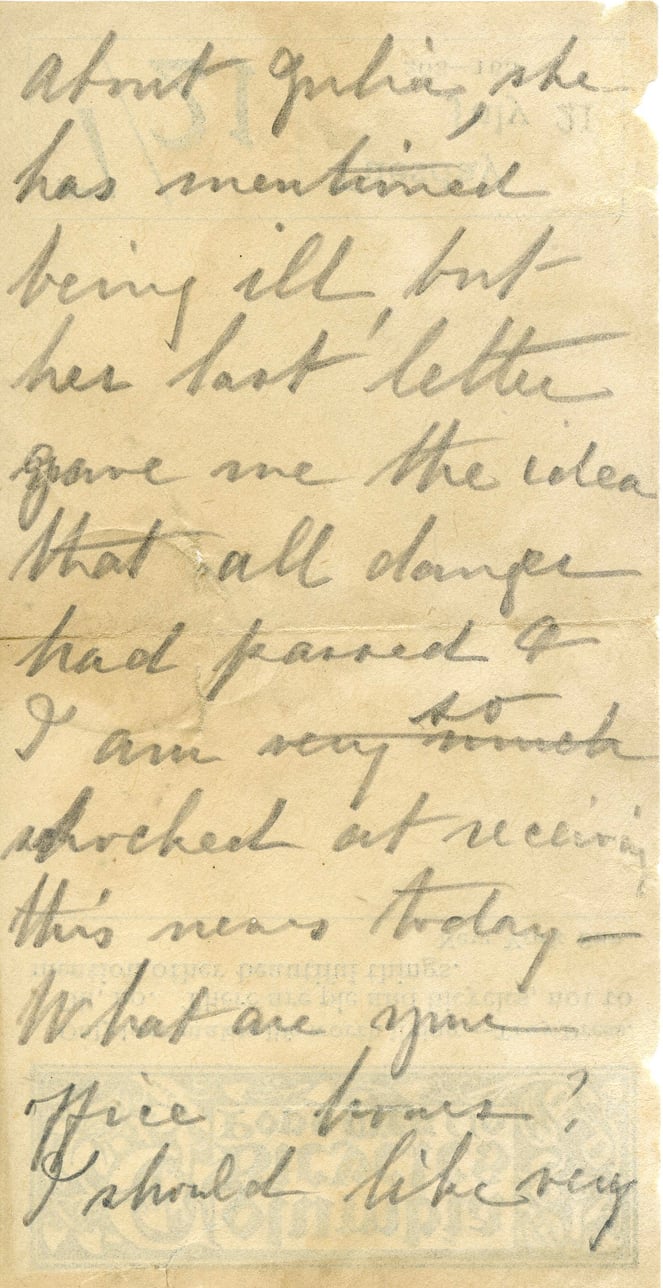 about Julia, she
has mentioned
being ill, but
her last letter
gave me the idea
that all danger
had passed &
I am ~~very much~~ so
shocked at receiving
this news today—
What are your
office hours?
I should like very